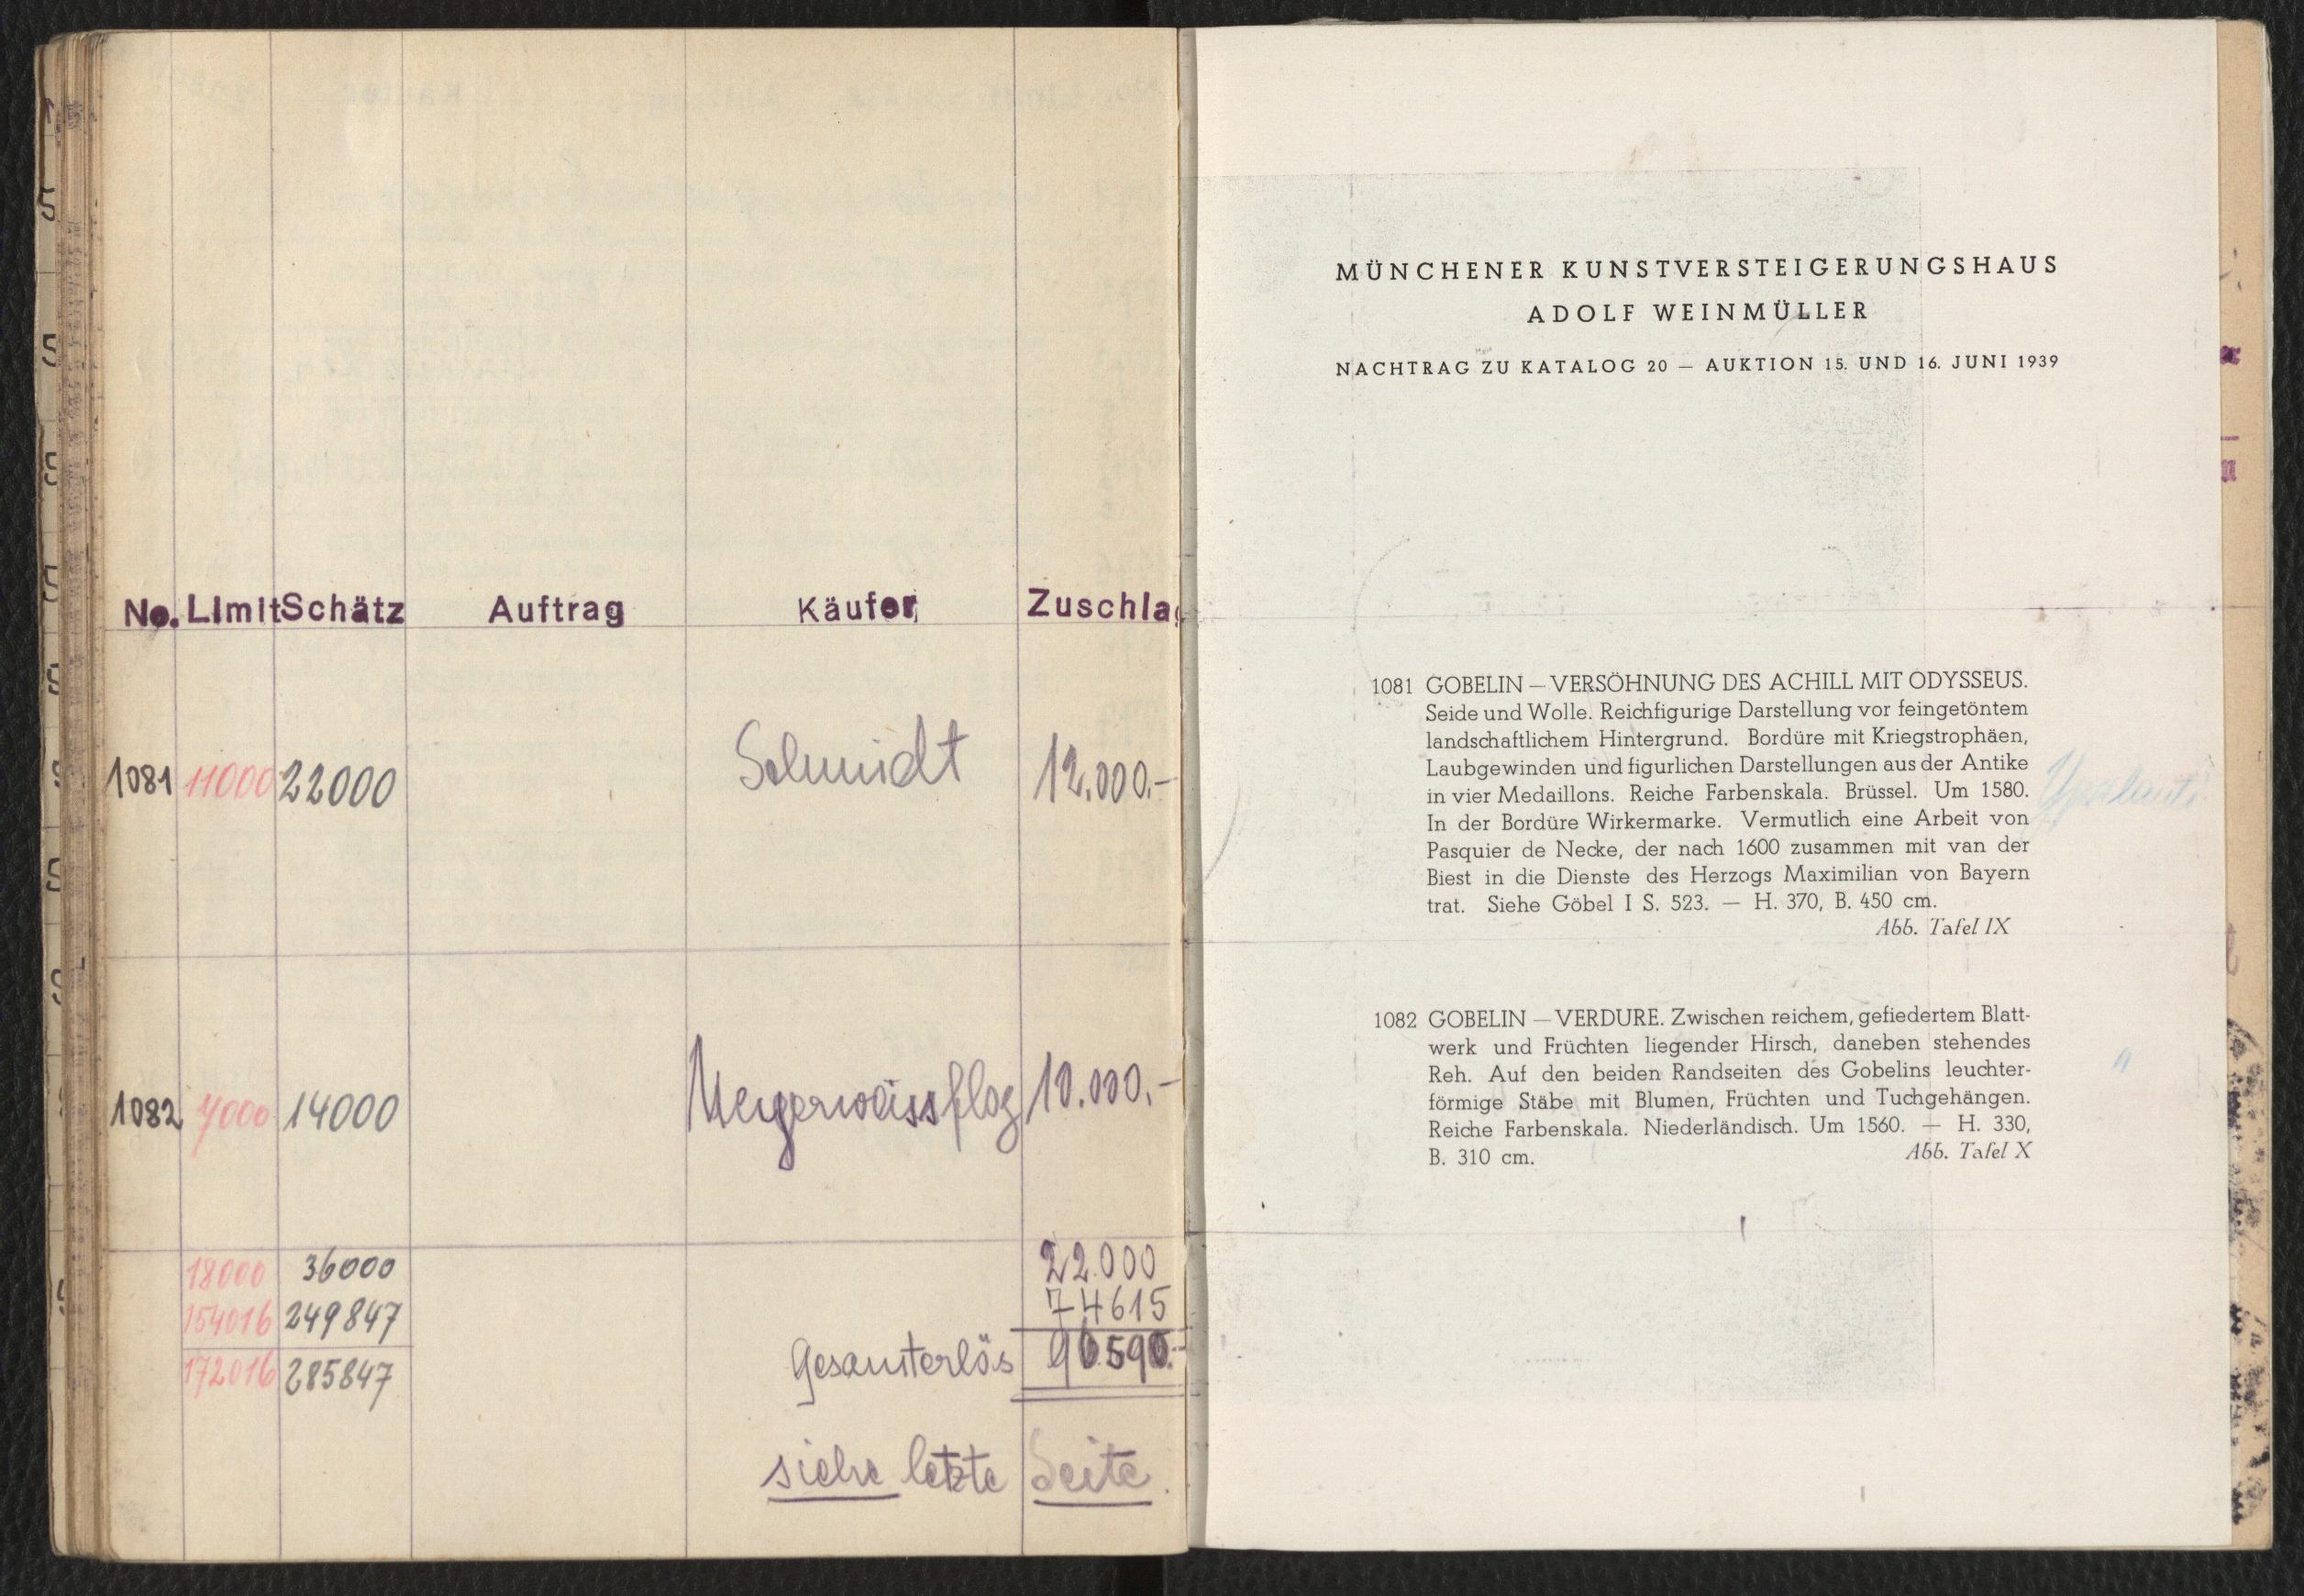 No. Limit Schätz Auftrag Käufer Zuschlag
1081 11000 22000 Schmidt 12.000.-
1082 7000 14000 10.000.-
18000 36000 22.000
154016 249847 74615
172016 285847 Gesamterlös 96590.-
siehe letzte Seite.
MÜNCHENER KUNSTVERSTEIGERUNGSHAUS
ADOLF WEINMÜLLER
NACHTRAG ZU KATALOG 20 — AUKTION 15. UND 16. JUNI 1939
1081 GOBELIN — VERSÖHNUNG DES ACHILL MIT ODYSSEUS.
Seide und Wolle. Reichfigurige Darstellung vor feingetöntem
landschaftlichem Hintergrund. Bordüre mit Kriegstrophäen,
Laubgewinden und figurlichen Darstellungen aus der Antike
in vier Medaillons. Reiche Farbenskala. Brüssel. Um 1580.
In der Bordüre Wirkermarke. Vermutlich eine Arbeit von
Pasquier de Necke, der nach 1600 zusammen mit van der
Biest in die Dienste des Herzogs Maximilian von Bayern
trat. Siehe Göbel I S. 523. — H. 370, B. 450 cm.
Abb. Tafel IX
1082 GOBELIN — VERDURE. Zwischen reichem, gefiedertem Blatt-
werk und Früchten liegender Hirsch, daneben stehendes
Reh. Auf den beiden Randseiten des Gobelins leuchter-
förmige Stäbe mit Blumen, Früchten und Tuchgehängen.
Reiche Farbenskala. Niederländisch. Um 1560. — H. 330,
B. 310 cm. Abb. Tafel X